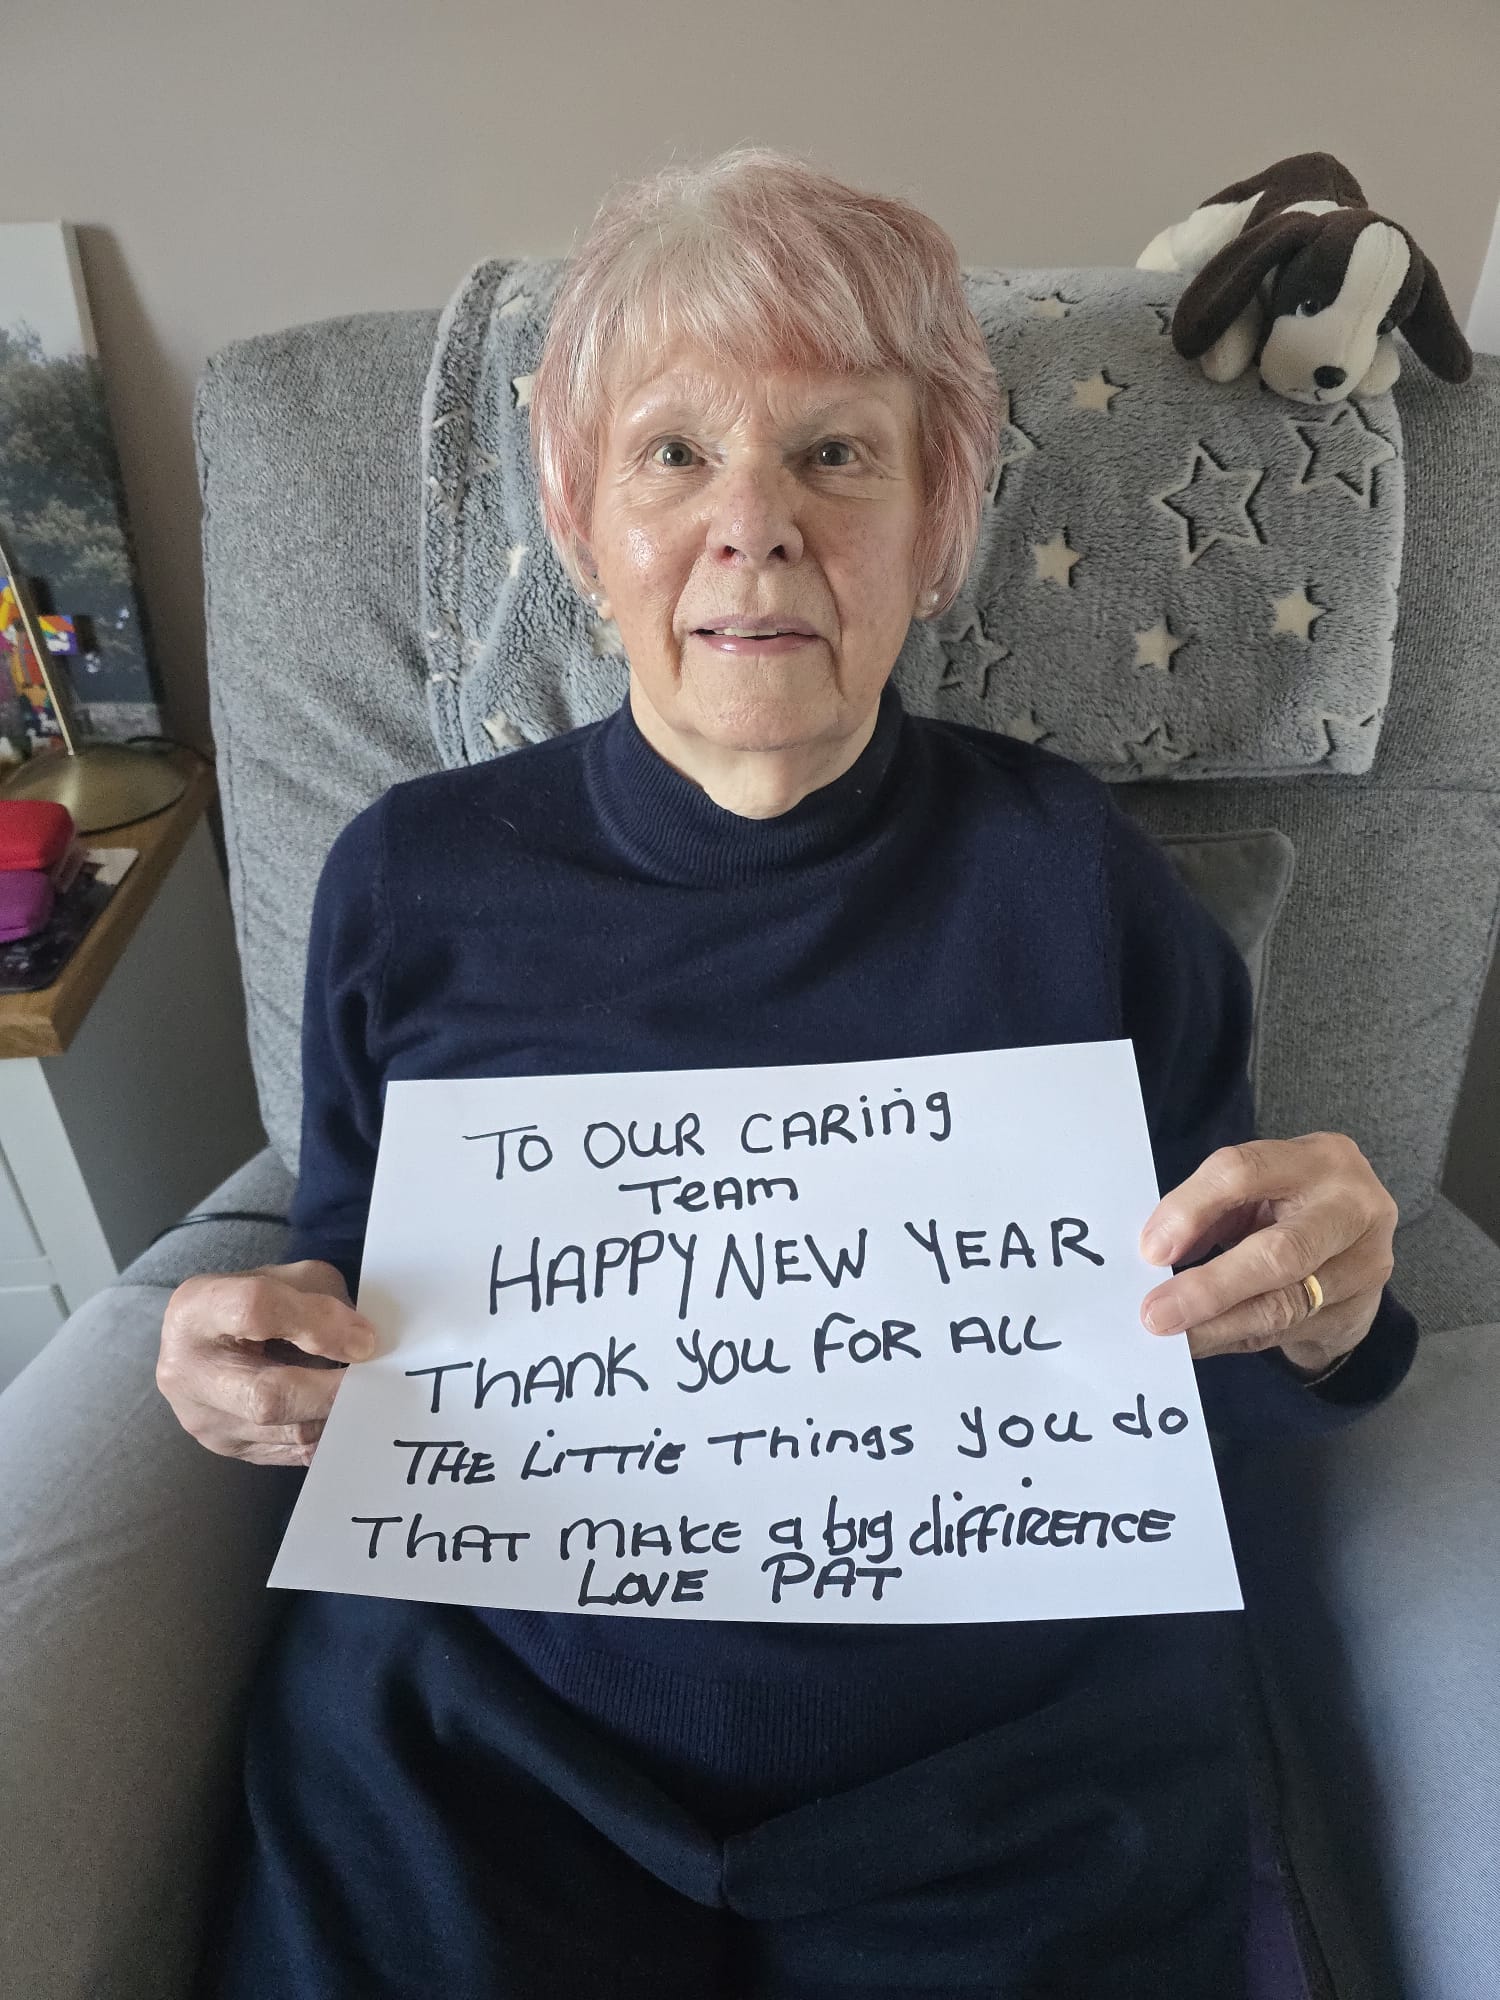 TO OUR CARing
TeAm
HAPPY NEW YEAR
THANK YOU FOR ALL
THE LiTTlE Things you do
THAT MAKE a big diffiRENCE
LOVE PAT